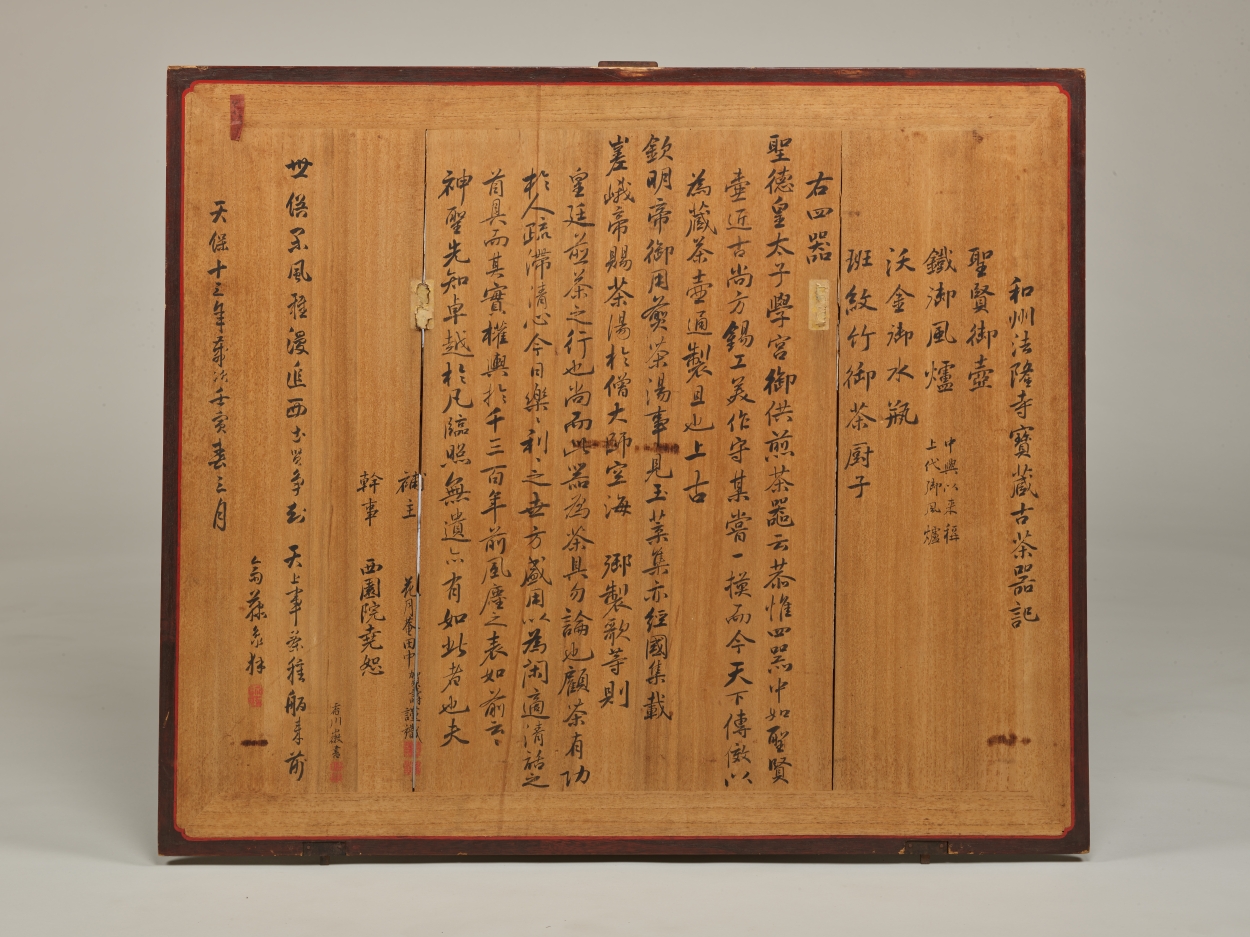 和州法隆寺寶蔵古茶器記
聖賢御壺
鐵御風爐
中興以来稱
上代御風爐
沃金御水瓶
班紋竹御茶厨子
右四器
聖德皇太子學宮御供煎茶器云恭惟四器中如聖賢
壺近古尚方錫工美作守某嘗一摸而今天下傳倣以
為蔵茶壺通製且也上古
欽明帝御用煎茶湯事見玉葉集亦經國集載
嵯峨帝賜茶湯於僧大師空海 御製歌等則
皇廷煎茶之行也尚而此器為茶具勿論也顧茶有功
於人疏滯清心今日樂〻利〻之世方盛用以為閑適清話之
首具而其實權輿於千三百年前風塵之表如前云〻
神聖先知卓越於凡臨照無遺亦有如此者也夫
補主 花月菴田中
幹事 西園院堯恕
香川 書
世 風雅漫追西 天上事茶種舶来前
天保十三年 壬寅春三月